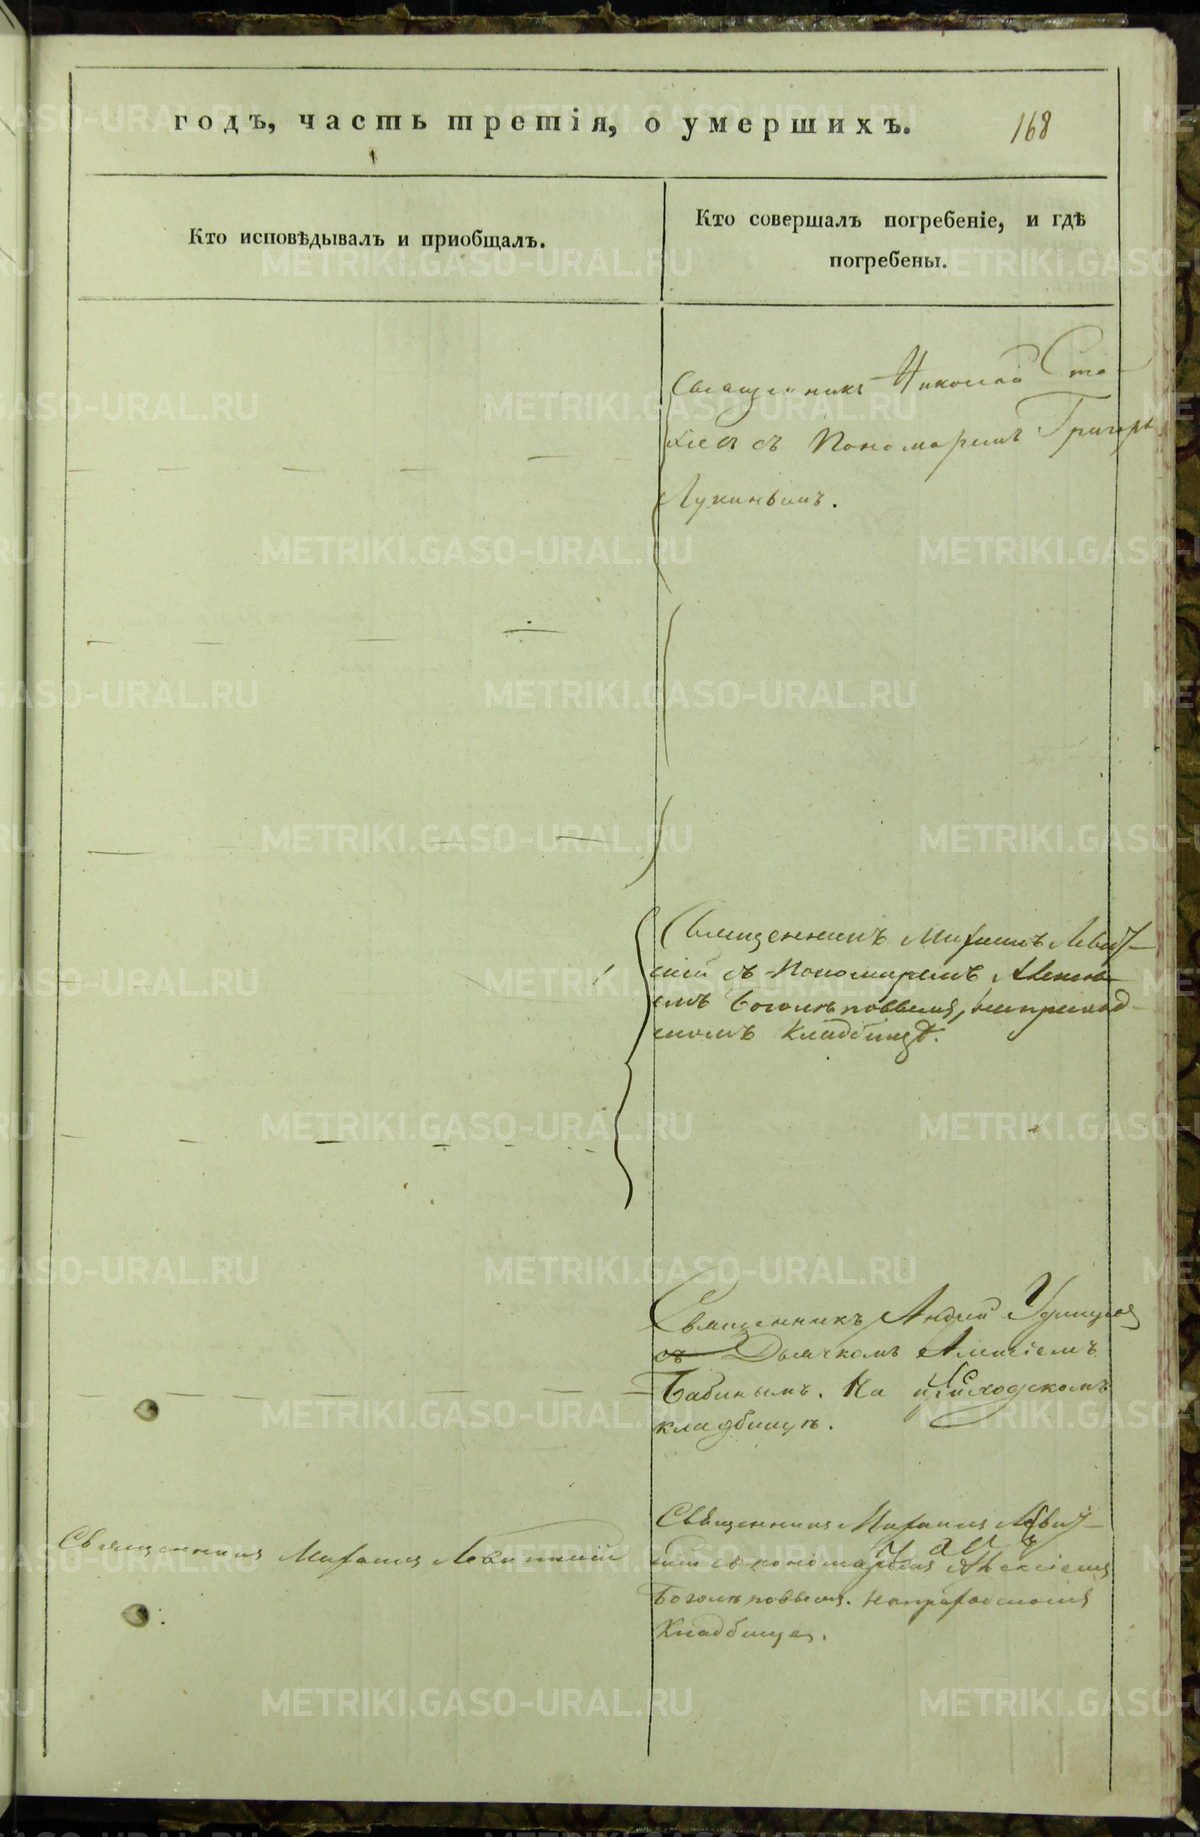 годъ, часть третія, о умершихъ.
168
Кто исповѣдывалъ и приобщалъ.
Кто совершалъ погребеніе, и гдѣ
погребены.
Священникъ Николай Сто
съ Пономаремъ Григорь
Лукинымъ.
Священникъ Михаилъ Левит-
скій съ Пономаремъ Алексѣ
емъ Боголѣповымъ, на приход-
скомъ кладбищѣ.
Священникъ Андрей
съ Дьячкомъ Алексіемъ
Бабинымъ. На приходскомъ
кладбищѣ.
Священникъ Михаилъ Левитскій
Священникъ Михаилъ Левит-
скій съ пономаремъ Алексіемъ
Боголѣповымъ. на приходскомъ
Кладбище.
METRIKI.GASO-URAL.RU